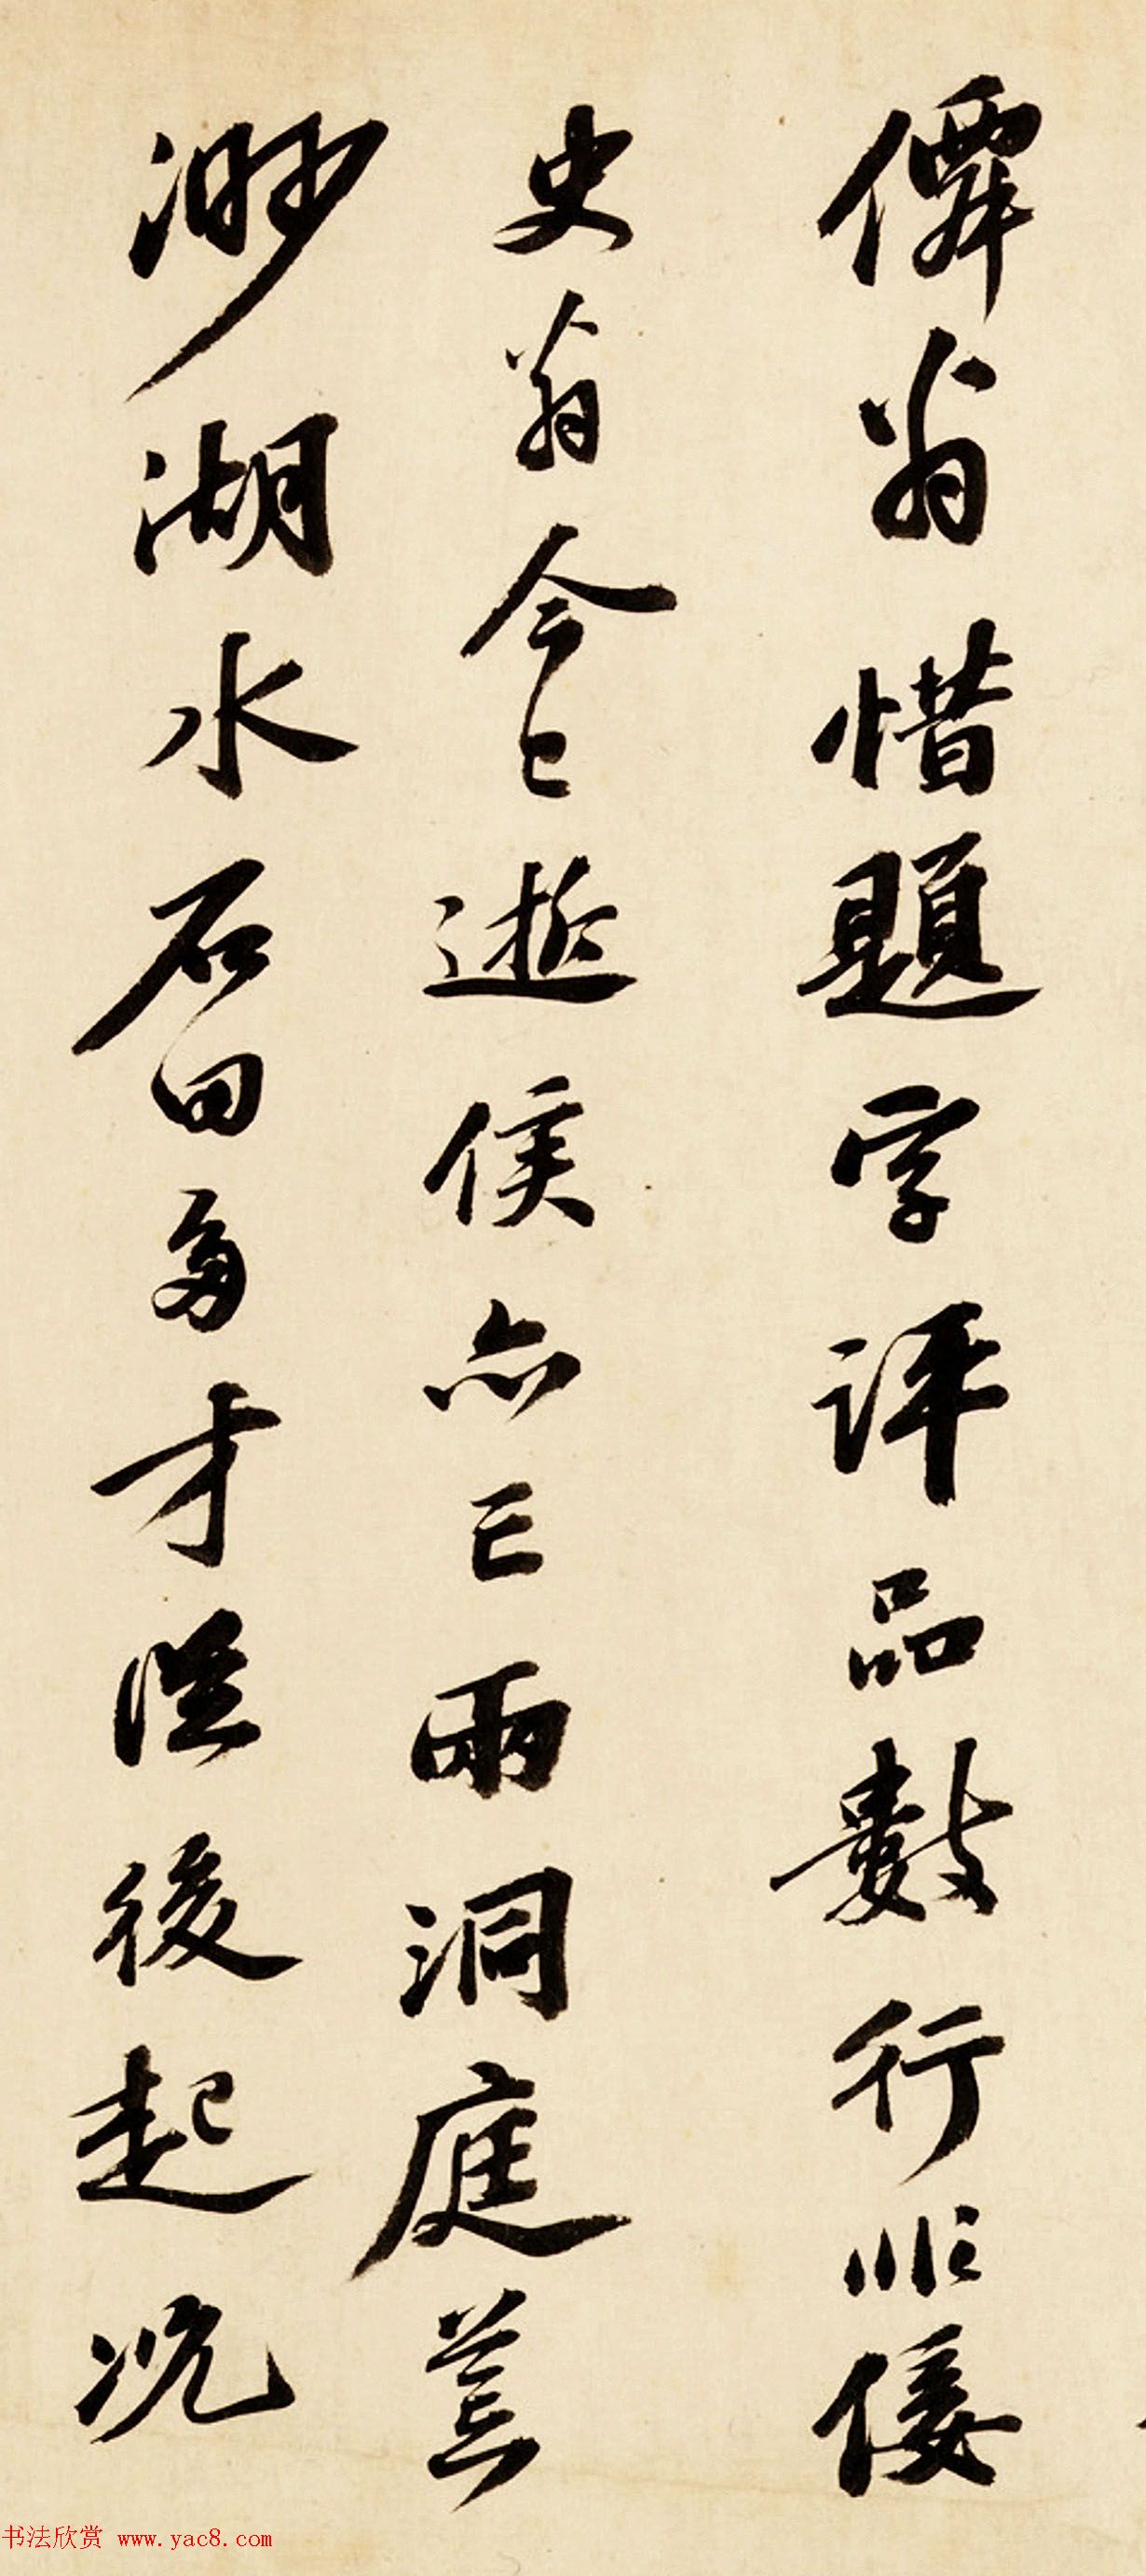 僊翁惜題字評品數行非倭
史翁今已逝侯亦亡兩洞庭荒
渺湖水石田多才從後起况
书法欣赏 www.yac8.com